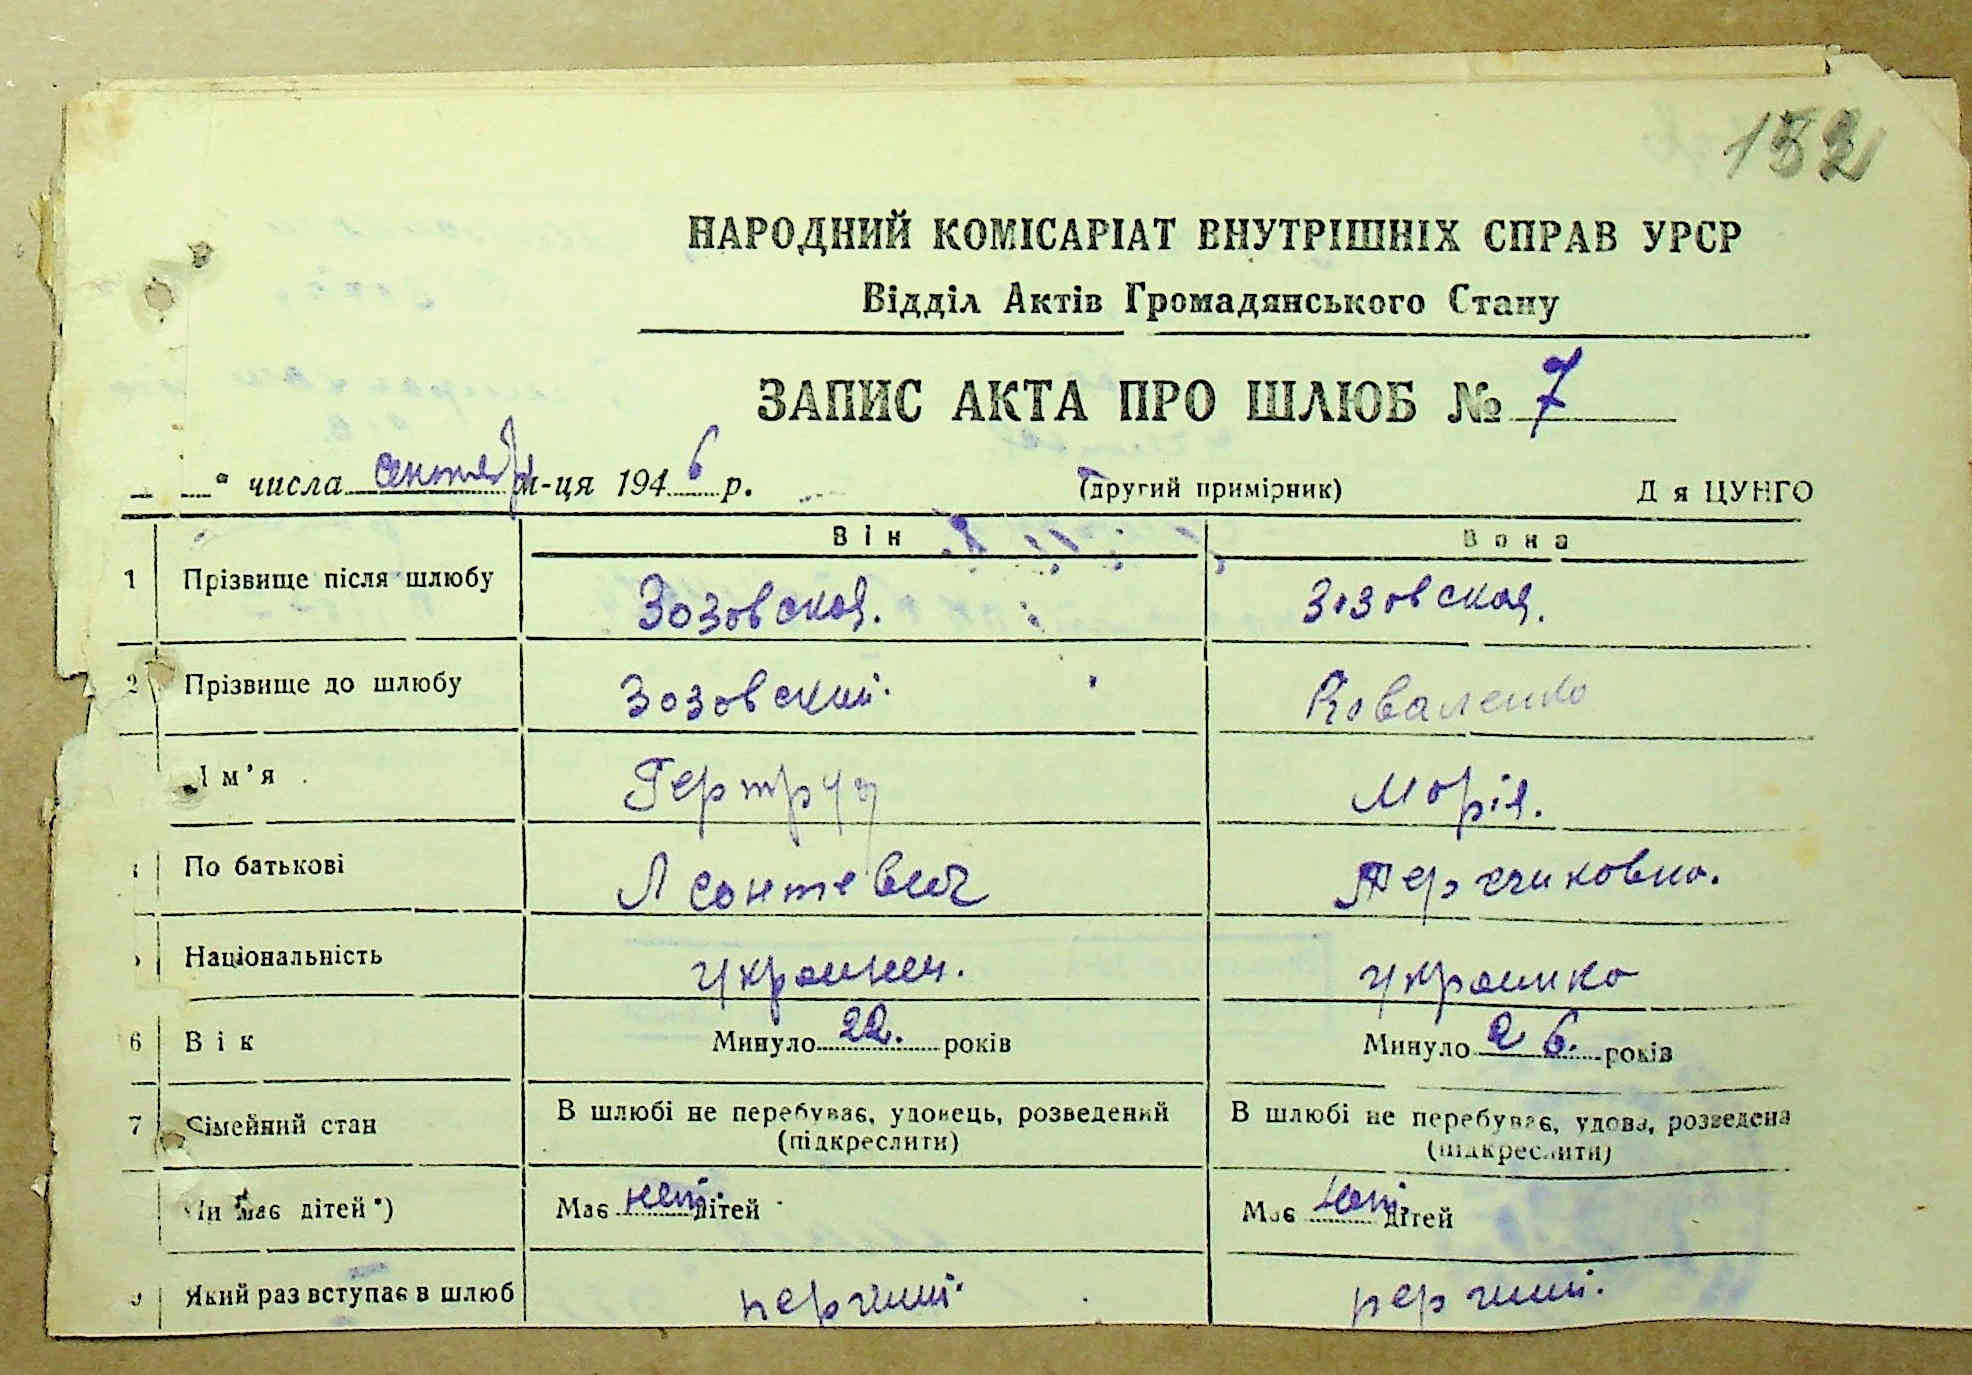 152
НАРОДНИЙ КОМІСАРІАТ ВНУТРІШНІХ СПРАВ УРСР
Відділ Актів Громадянського Стану
ЗАПИС АКТА ПРО ШЛЮБ № 7
" числа сентябр м-ця 1946 р. (другий примірник) Д я ЦУНГО
Він Вона
1 Прізвище після шлюбу Зозовская. Зозовская.
2 Прізвище до шлюбу Зозовский. Коваленко
Ім'я Гертруд Морія.
По батькові Леонтевич
Національність украинец. украинка
6 Вік Минуло 22. років Минуло 26. років
7 Сімейний стан В шлюбі не перебуває, удовець, розведений (підкреслити) В шлюбі не перебуває, удова, розведена (підкреслити)
Чи має дітей *) Має нет. дітей Має нет. дітей
9 Який раз вступає в шлюб перчий. перчий.